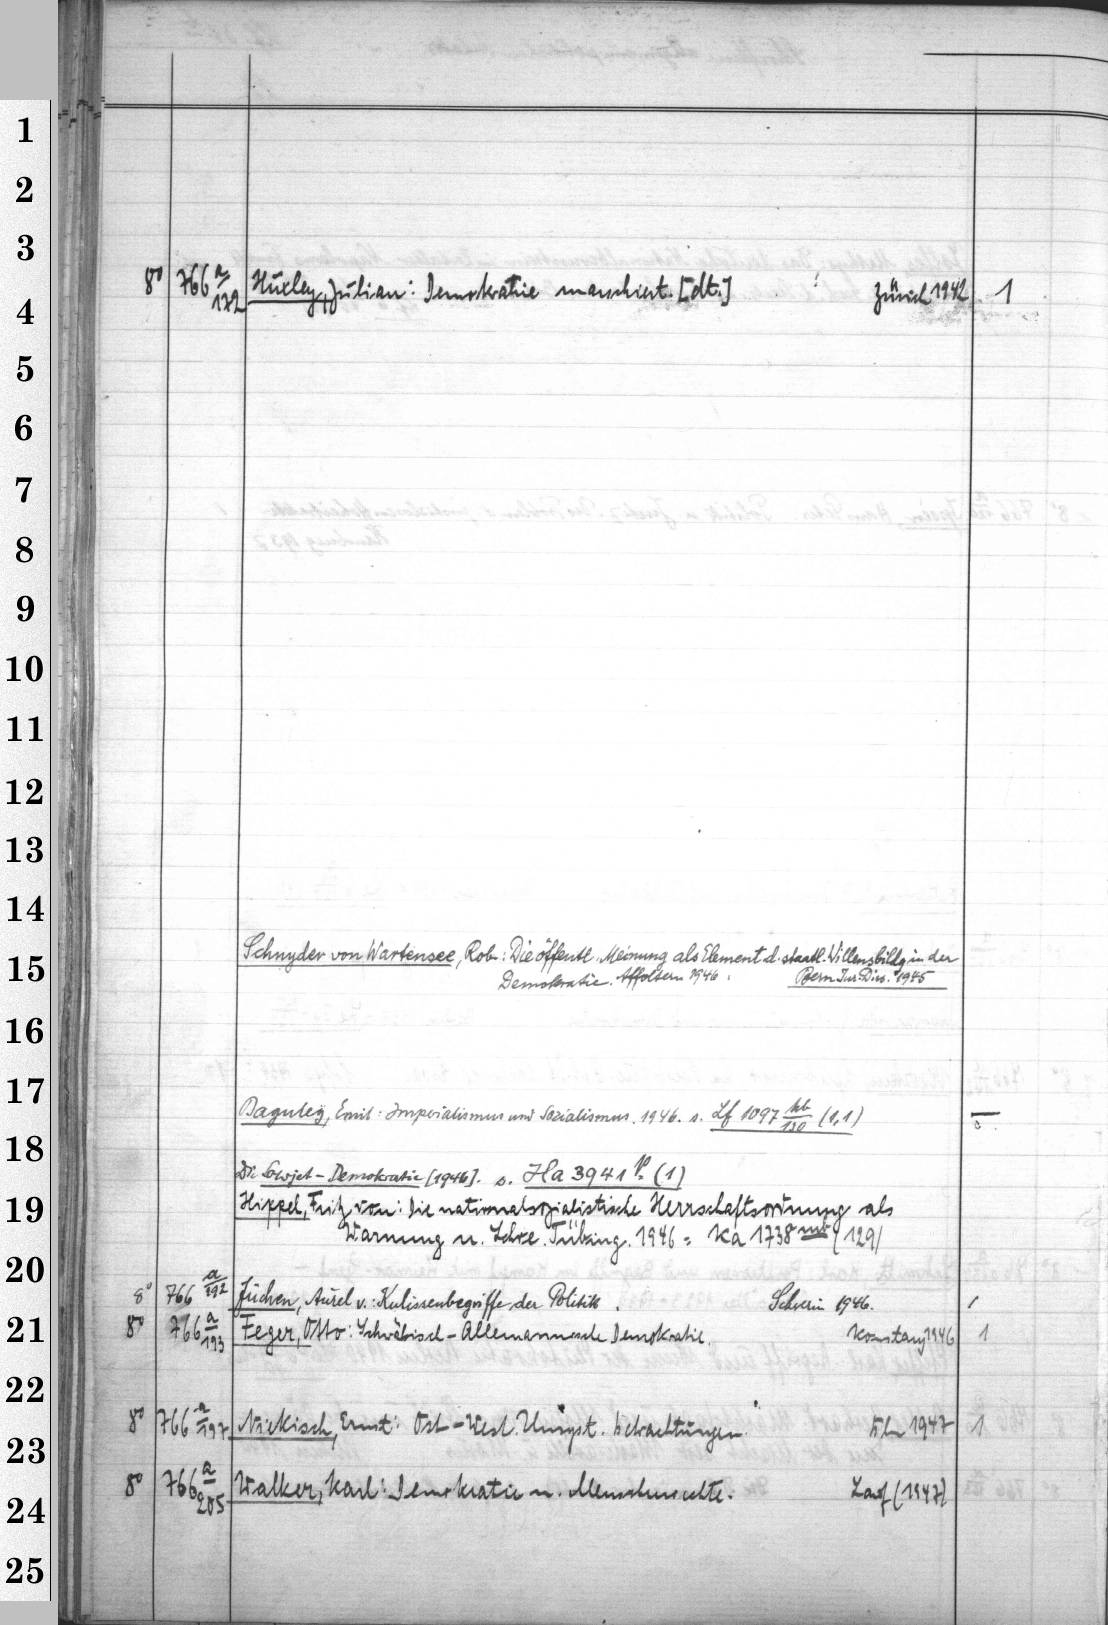 1
2
3
8° 766 a/172 Huxley, Julian: Demokratie marschiert. [dt.] Zürich 1942. 1
4
5
6
7
8
9
10
11
12
13
14
Schnyder von Wartensee, Rob.: Die öffentl. Meinung als Element d. staatl. Willensbildg in der
15
Demokratie. Affoltern 1946. Bern Jur. Diss. 1945
16
17
Emil: Imperialismus und Sozialismus. 1946. s. Lf 1097 (1,1)
18
Die Sowjet-Demokratie [1946]. s. Ha 3941 (1)
19
Hippel, Fritz von: Die nationalsozialistische Herrschaftsordnung als
Warnung u. Lehre. Tübing. 1946 = Ka 1738 (129)
20
8° 766 a/192 Jüchen, Aurel v.: Kulissenbegriffe der Politik. Schwerin 1946. 1
21
8° 766 a/193 Feger, Otto: Schwäbisch-Alemannische Demokratie. Konstanz 1946 1
22
8° 766 a/197 Niekisch, Ernst: Ost-West. Unsyst. Betrachtungen. Bln 1947 1
23
8° 766 a/205 Walker, Karl: Demokratie u. Menschenrechte. Lauf (1947)
24
25